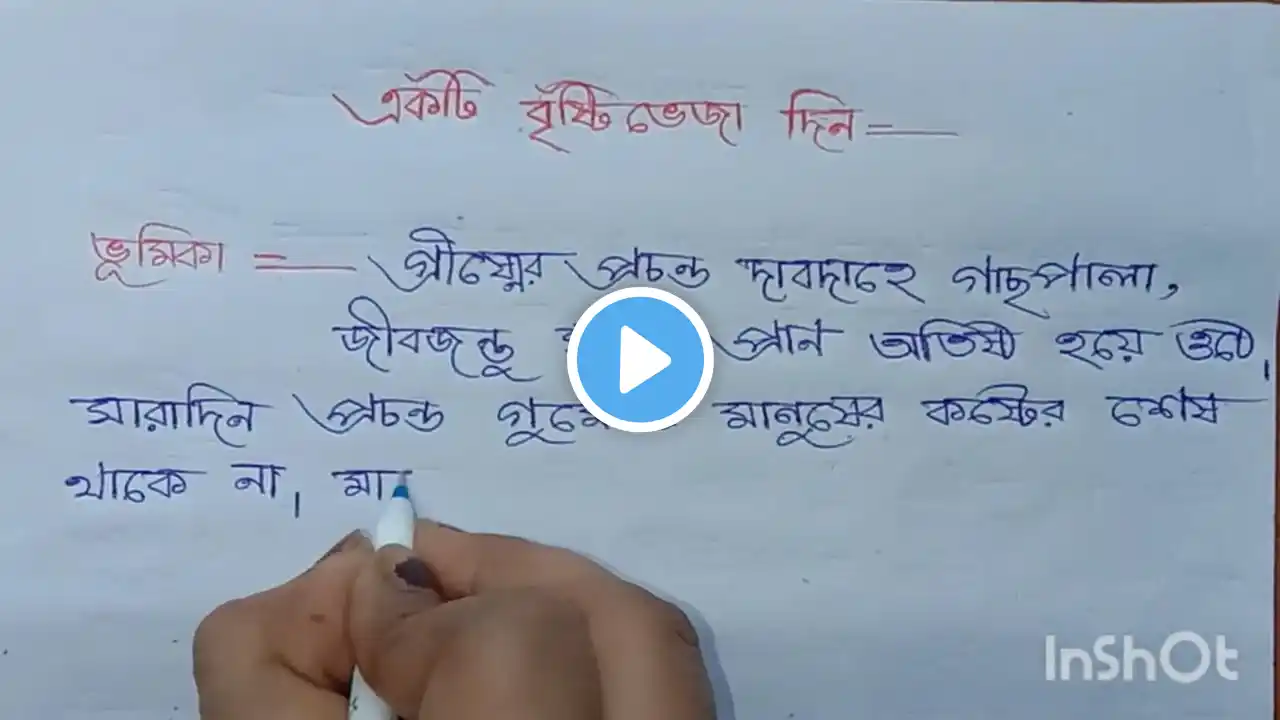 একটি বৃষ্টি ভেজা দিন =
ভূমিকা = গ্রীষ্মের প্রচন্ড দাবদাহে গাছপালা,
জীবজন্তু প্রান অতিষ্ঠ হয়ে ওঠে।
সারাদিন প্রচন্ড মানুষের কষ্টের শেষ
থাকে না। মা
InShOt